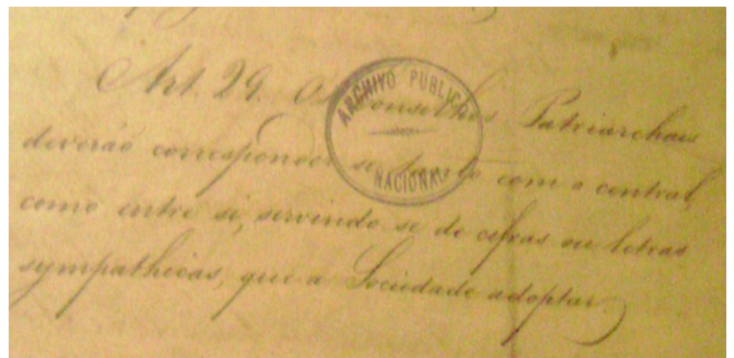 Art. 29. Os Conselhos Patriarchaes
deverão corresponder se tanto com o central,
como entre si, servindo se de cifras ou letras
sympathicas, que a Sociedade adoptar.
ARCHIVO PUBLICO
NACIONAL